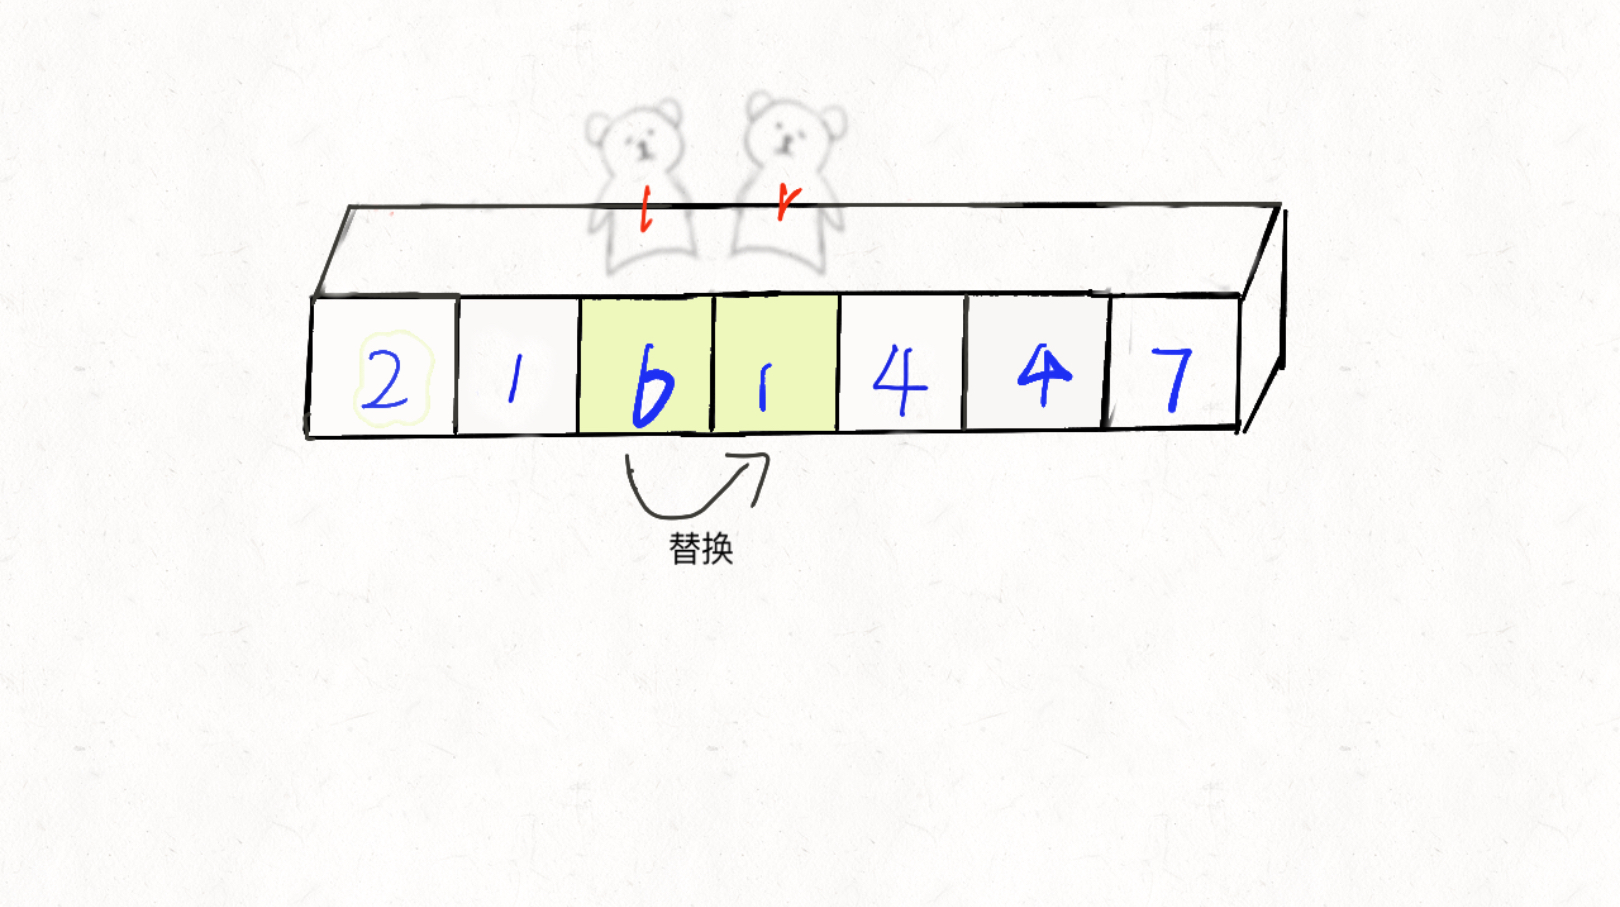 l r
2 1 6 1 4 4 7
替换